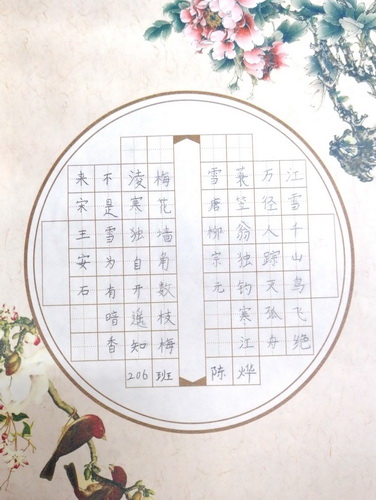 江雪千山鸟飞绝
万径人踪灭孤舟
蓑笠翁独钓寒江
雪唐柳宗元
梅花墙角数枝梅
凌寒独自开遥知
不是雪为有暗香
来宋王安石
206班
陈烨